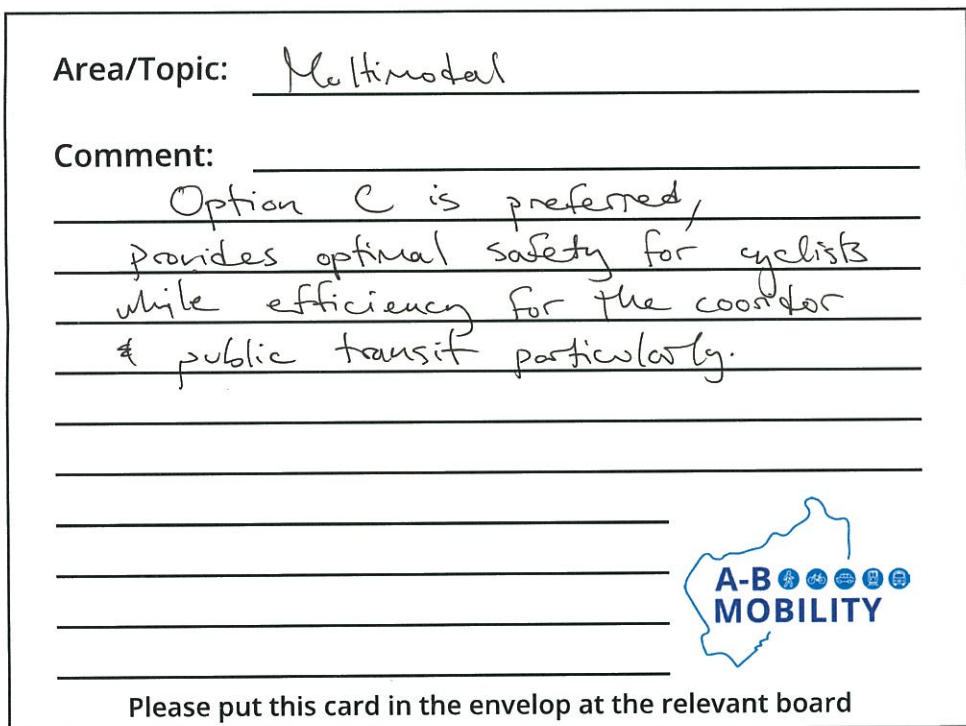 Area/Topic: Multimodal
Comment:
Option C is preferred,
provides optimal safety for cyclists
while efficiency for the cooridor
& public transit particularly.
A-B
MOBILITY
Please put this card in the envelop at the relevant board